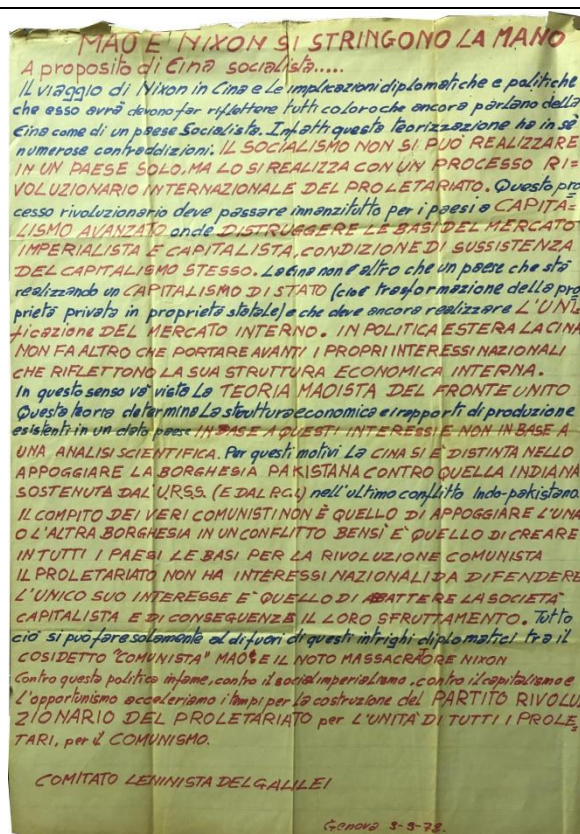 MAO E' NIXON SI STRINGONO LA MANO
A proposito di Cina socialista.....
Il viaggio di Nixon in Cina e le implicazioni diplomatiche e politiche
che esso avrà devono far riflettere tutti coloro che ancora parlano della
Cina come di un paese Socialista. Infatti questa teorizzazione ha in sè
numerose contraddizioni. IL SOCIALISMO NON SI PUO' REALIZZARE
IN UN PAESE SOLO, MA LO SI REALIZZA CON UN PROCESSO RI=
VOLUZIONARIO INTERNAZIONALE DEL PROLETARIATO. Questo pro
cesso rivoluzionario deve passare innanzitutto per i paesi a CAPITA=
LISMO AVANZATO onde DISTRUGGERE LE BASI DEL MERCATO
IMPERIALISTA E CAPITALISTA, CONDIZIONE DI SUSSISTENZA
DEL CAPITALISMO STESSO. La Cina non è altro che un paese che stà
realizzando un CAPITALISMO DI STATO (cioè trasformazione della pro
prietà privata in proprietà statale) e che deve ancora realizzare L'UNI
ficazione DEL MERCATO INTERNO. IN POLITICA ESTERA LA CINA
NON FA ALTRO CHE PORTARE AVANTI I PROPRI INTERESSI NAZIONALI
CHE RIFLETTONO LA SUA STRUTTURA ECONOMICA INTERNA.
In questo senso và vista La TEORIA MAOISTA DEL FRONTE UNITO
Questa teoria determina La struttura economica e i rapporti di produzione
esistenti in un dato paese IN BASE A QUESTI INTERESSI E NON IN BASE A
UNA ANALISI SCIENTIFICA. Per questi motivi La CINA SI E' DISTINTA NELLO
APPOGGIARE LA BORGHESIA PAKISTANA CONTRO QUELLA INDIANA
SOSTENUTA DAL'U.R.S.S. (E DAL P.C.I.) nell'ultimo conflitto Indo-pakistano.
IL COMPITO DEI VERI COMUNISTI NON È QUELLO DI APPOGGIARE L'UNA
O L'ALTRA BORGHESIA IN UN CONFLITTO BENSI E' QUELLO DI CREARE
IN TUTTI I PAESI LE BASI PER LA RIVOLUZIONE COMUNISTA
IL PROLETARIATO NON HA INTERESSI NAZIONALI DA DIFENDERE
L'UNICO SUO INTERESSE E' QUELLO DI ABATTERE LA SOCIETA'
CAPITALISTA E DI CONSEGUENZE IL LORO SFRUTTAMENTO. Tutto
ciò si può fare solamente al di fuori di questi intrighi diplomatici tra il
COSIDETTO "COMUNISTA" MAO E IL NOTO MASSACRATORE NIXON
Contro questa politica infame, contro il social imperialismo, contro il capitalismo e
l'opportunismo acceleriamo i tempi per la costruzione del PARTITO RIVOLU
ZIONARIO DEL PROLETARIATO per L'UNITA' DI TUTTI I PROLE=
TARI, per il COMUNISMO.
COMITATO LENINISTA DEL GALILEI
Genova 3-3-72.